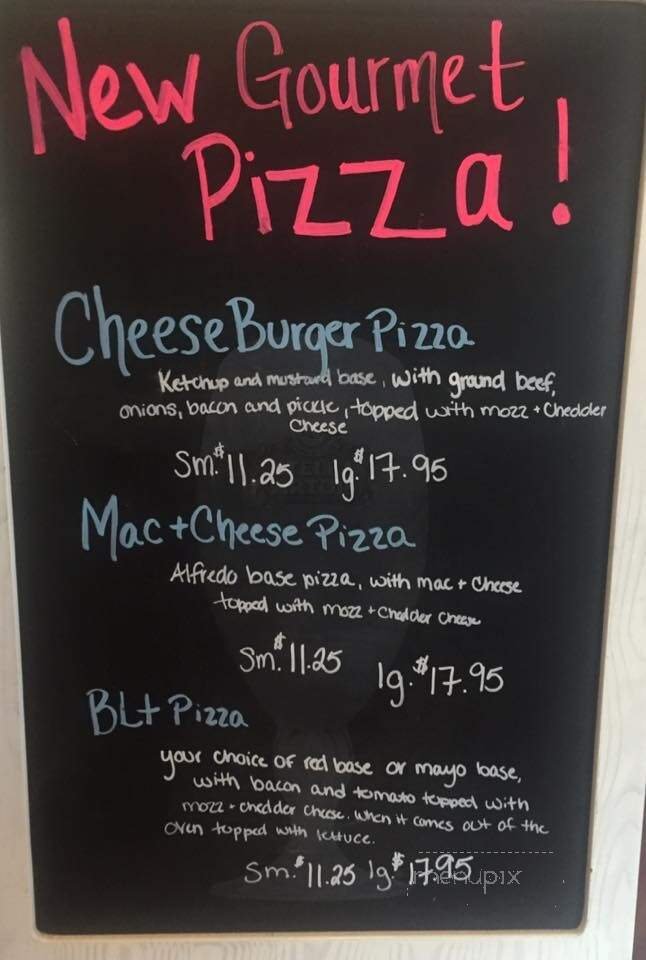 New Gourmet
Pizza!
CheeseBurger Pizza
Ketchup and mustard base, with ground beef,
onions, bacon and pickle, topped with mozz + Chedder
Cheese
Sm. $11.25 lg. $17.95
Mac + Cheese Pizza
Alfredo base pizza, with mac + Cheese
topped with mozz + Chedder Cheese
Sm. $11.25 lg. $17.95
BLt Pizza
your choice of red base or mayo base,
with bacon and tomato topped with
mozz + chedder cheese. When it comes out of the
oven topped with lettuce.
Sm. $11.25 lg $17.95
menupix